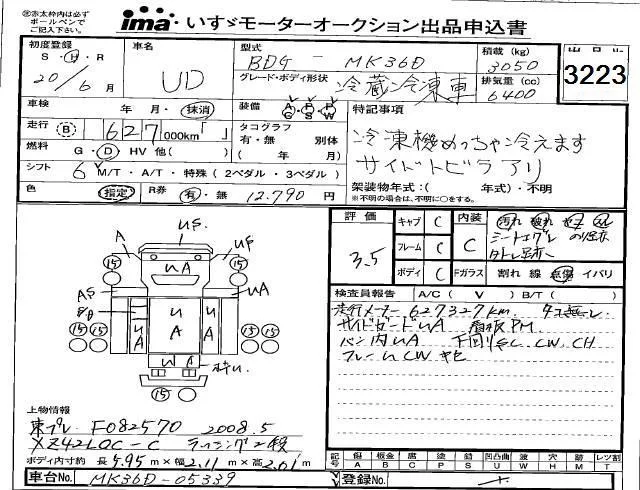 ㊟赤太枠内は必ず
ボールペンで
ご記入下さい。
ima いすゞモーターオークション出品申込書
初度登録
S・H・R
20/6月
車名
UD
型式
BDG - MK36D
グレード・ボディ形状
冷蔵冷凍車
積載(kg)
3050
排気量(cc)
6400
3223
車検
年 月・抹消
装備
特記事項
走行
B
627,000km
タコグラフ
有・無 別体
( 年 月)
冷凍機めっちゃ冷えます
サイドトビラアリ
燃料
G・D HV 他( )
シフト
6 M/T・A/T・特殊(2ペダル・3ペダル)
架装物年式:( 年式)・不明
※不明の場合は、不明に○をする。
色
指定
R券
有・無
12.790円
評価
3.5
キャブ C
フレーム C
ボディ C
内装 C
汚れ 破れ
Fガラス 割れ 線 点傷 イバリ
検査員報告 A/C( V ) B/T( )
走行メーター 627327km
サイドゲートUA
バン内UA
フレームCW
CW, CH
US
A
UP
15
UA
15
AS
UA
UA
UA
UA
15 15
15 15
UA
15
上物情報
東プレ F082570 2008.5
XZ42LOC-C ラッシング2段
ボディ内寸約 長5.95m×幅2.11m×高2.01m
記号 傷 板金 腐 塗 色 凹 凸曲 波 穴 跡 レツ割
A B C P S U W H M T
車台No. MK36D-05339
登録No.